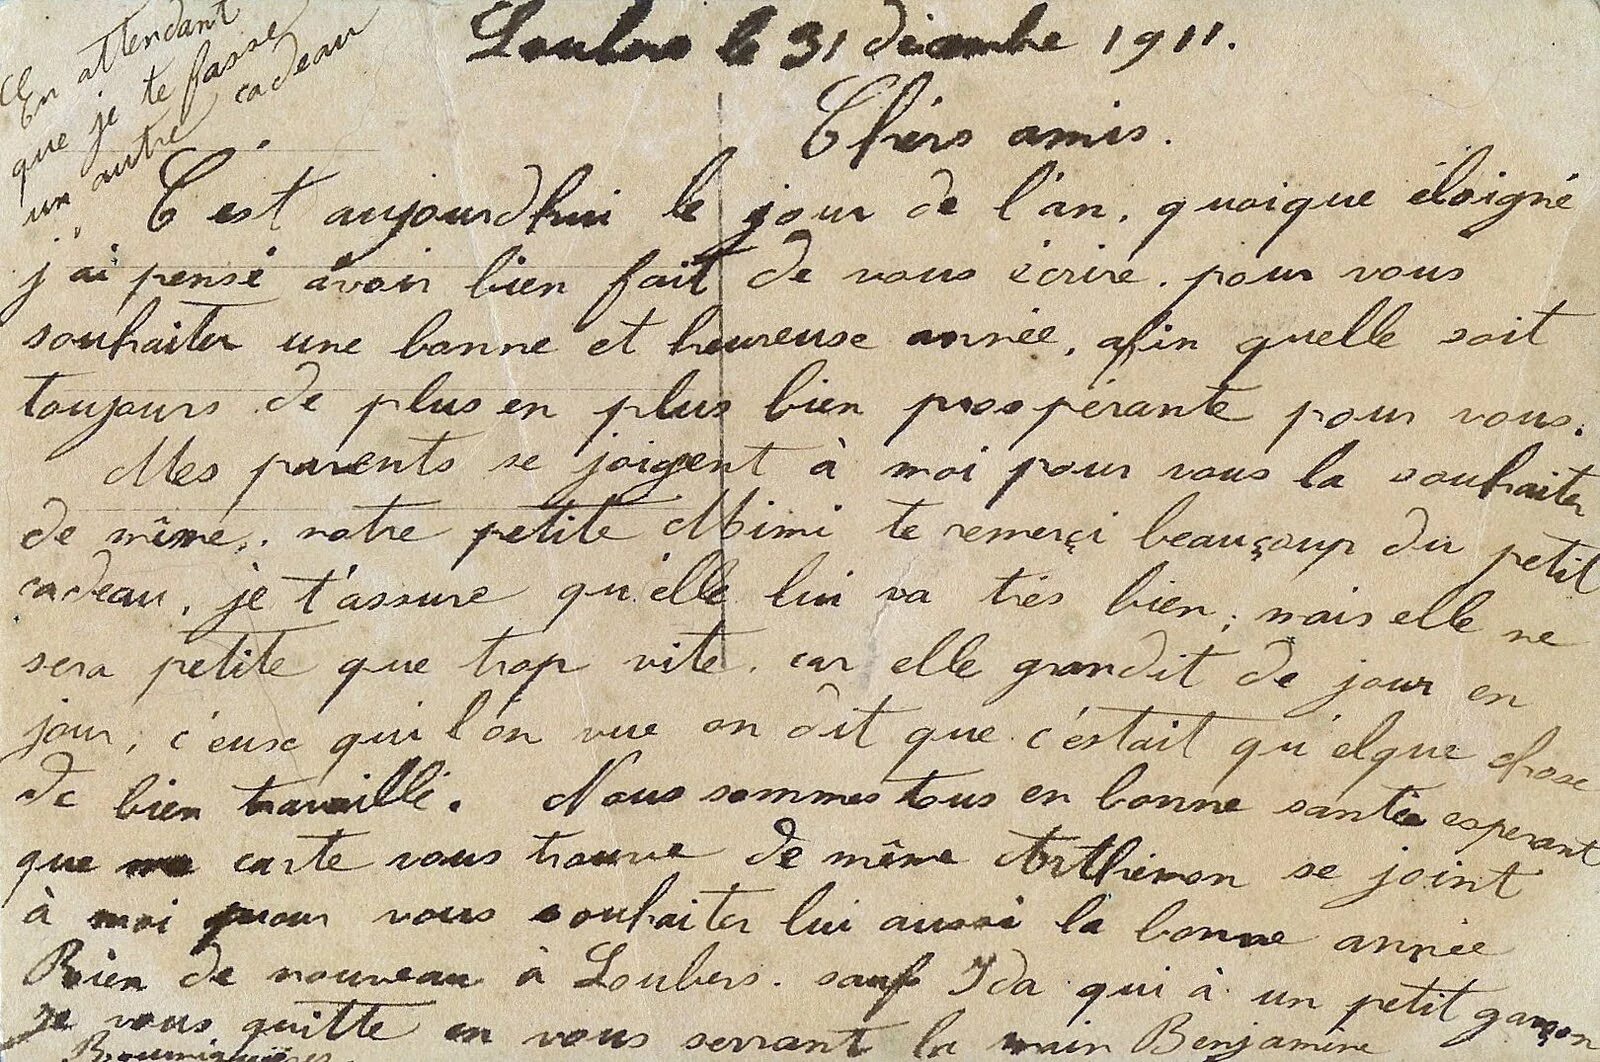 En attendant
que je te fasse
un autre cadeau
Loubers le 31 décembre 1911.
Chèrs amis.
C'est aujourdhui le jour de l'an, quoique éloigné
j'ai pensé avoir bien fait de vous écrire. pour vous
souhaiter une bonne et heureuse année, afin quelle soit
toujours de plus en plus bien prospérante pour vous.
Mes parents se joigent à moi pour vous la souhaiter
de même, notre petite Mimi te remerçi beauçoup du petit
cadeau, je t'assure qu'elle lui va très bien, mais elle ne
sera petite que trop vite. car elle grandit de jour en
jour, c'euse qui l'on vue on dit que c'estait qu'elque chose
de bien travaillé. Nous sommes tous en bonne santée esperant
que ma carte vous trouve de même Arthémon se joint
à moi pour vous souhaiter lui aussi la bonne année
Rien de nouveau à Loubers. sauf Ida qui à un petit garçon
Je vous quitte en vous serrant la main Benjamine
Bourniquières